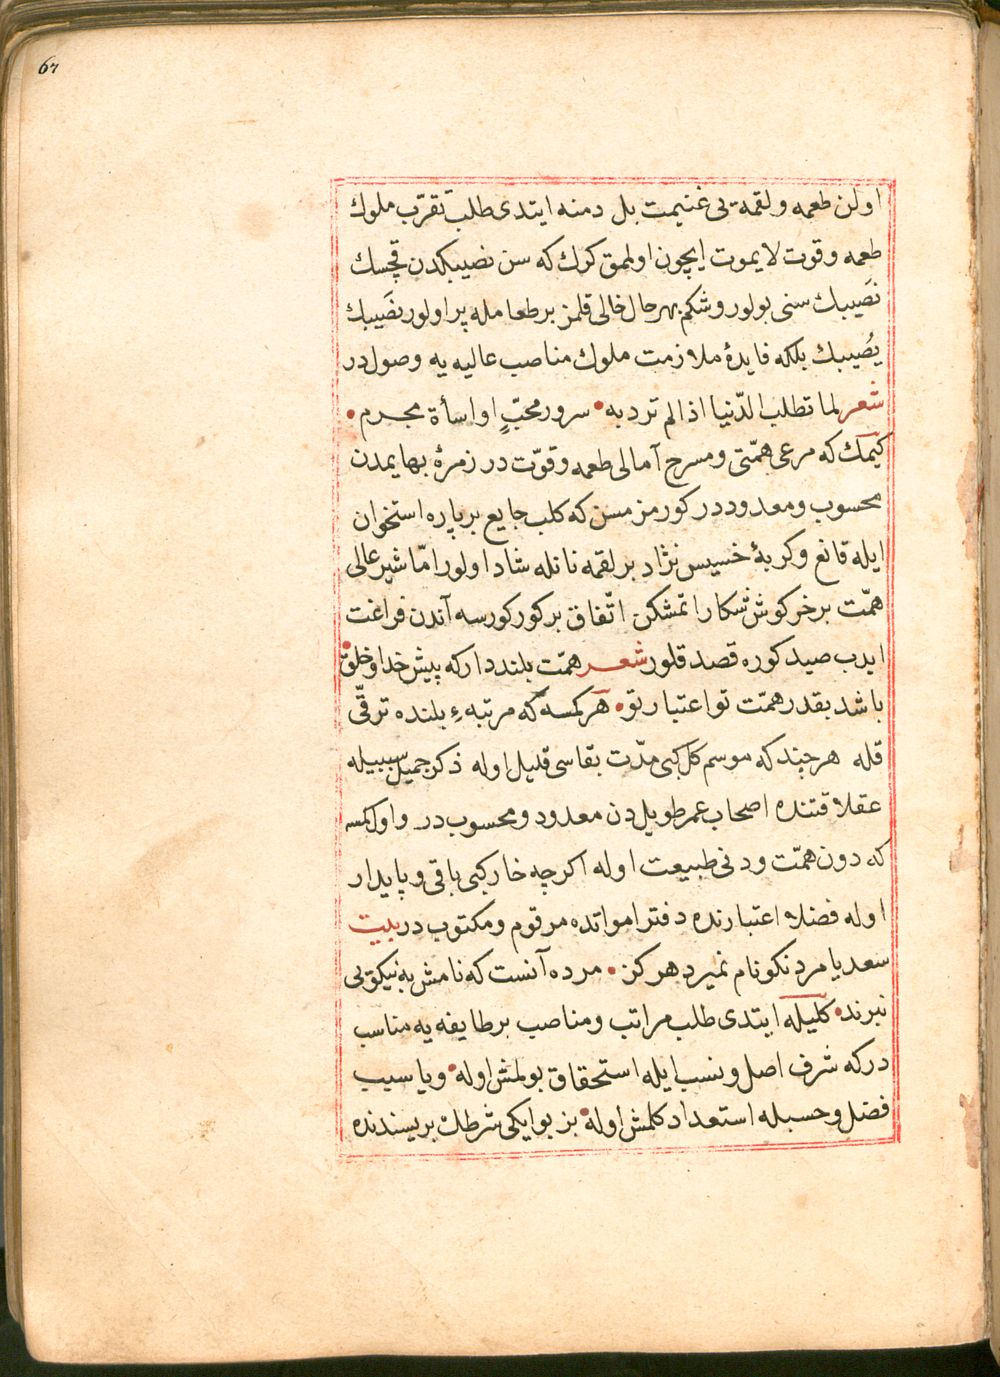 67
اولن طعمه و لقمه یی غنیمت بل دمنه ایتدی طلب تقرّب ملوك
طعمه و قوت لا یموت ایچون اولمق كرك كه سن نصیبكدن قچسك
نَصیبك سنی بولور و شكم بهر حال خالی قلمز بر طعامله پر اولور نَصیبك
یُصیبك بلكه فایدهٔ ملازمت ملوك مناصب عالیه یه وصول در
شعر لما تطلب الدّنیا اذا لم ترد به • سرور محبٍّ او اسأة مجرم •
كیمك كه مرعی همّتی و مسرح آمالی طعمه و قوّت در زمرهٔ بهایمدن
محسوب و معدود در كورمزمسن كه كلب جایع بر پاره استخوان
ایله قانع و كربهٔ خسیس نژاد بر لقمه نانله شاد اولور امّا شیر عالی
همّت بر خركوش شكار اتمشكن اتّفاق بر كور كورسه آندن فراغت
ایدب صید كوره قصد قلور شعر همّت بلند دار كه پیش خدا و خلق •
باشد بقدر همّت تو اعتبار تو • هر كمسه كه مرتبهء بلنده ترقّی
قله هر چند كه موسم كل كبی مدّت بقاسی قلیل اوله ذكر جمیل سببیله
عقلا قتنده اصحاب عمر طویلدن معدود و محسوب در و اول كمسه
كه دون همّت و دنی طبیعت اوله اكرچه خار كبی باقی و پایدار
اوله فضلا اعتبارنده دفتر امواتده مرقوم و مكتوب در بیت
سعدیا مرد نكونام نمیرد هركز • مرده آنست كه نامش به نیكویی
نبرند • كلیله ایتدی طلب مراتب و مناصب بر طایفه یه مناسب
در كه شرف اصل و نسب ایله استحقاق بولمش اوله • و یا سبب
فضل و حسبله استعداد كلمش اوله • بز بو ایكی شرطك بریسندنده